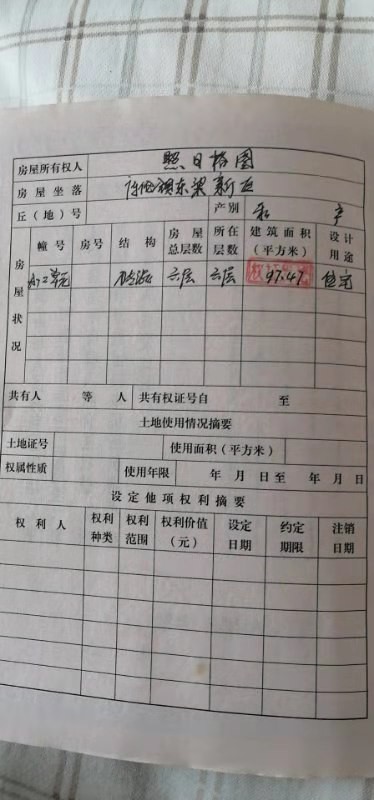 房屋所有权人 照日格图
房屋坐落 东梁新区
丘（地）号 产别 私产
房屋状况
幢号 房号 结构 房屋总层数 所在层数 建筑面积（平方米） 设计用途
单元 六层 六层 97.47 住宅
共有人 等 人 共有权证号自 至
土地使用情况摘要
土地证号 使用面积（平方米）
权属性质 使用年限 年 月 日至 年 月 日
设定他项权利摘要
权利人 权利种类 权利范围 权利价值（元） 设定日期 约定期限 注销日期